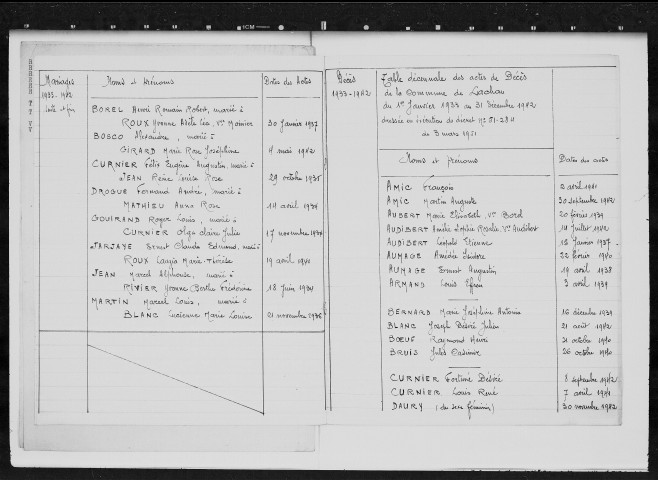 Mariages
1933-1942
Suite et fin
Noms et prénoms
Dates des Actes
BOREL Henri Romain Robert, marié à
ROUX Yvonne Adèle Léa, Vve Monier
30 Janvier 1937
BOSCO Alexandre, marié à
GIRARD Marie Rose Joséphine
4 mai 1942
CURNIER Félix Eugène Augustin, marié à
JEAN Reine Denise Rose
29 octobre 1935
DROGUE Fernand André, marié à
MATHIEU Anna Rose
14 avril 1934
GOUIRAND Roger Louis, marié à
CURNIER Olga Claire Julie
17 novembre 1934
JARJAYE Ernest Claude Edmond, marié à
ROUX Marie Thérèse
19 avril 1941
JEAN Marcel Alphonse, marié à
RIVIER Yvonne Berthe
18 Juin 1934
MARTIN Marcel Louis, marié à
BLANC Lucienne Marie Louise
21 novembre 1936
Décès
1933-1942
Table décennale des actes de Décès
de la Commune de Lachau
du 1er Janvier 1933 au 31 Décembre 1942
dressée en exécution du décret No 51-284
du 3 mars 1951
Noms et prénoms
Dates des actes
AMIC François
2 avril 1941
AMIC Martin Auguste
30 septembre 1942
AUBERT Marie Elisabeth, Vve Borel
20 février 1939
AUDIBERT Amélie Sophie Rosalie, Vve Audibert
14 juillet 1942
AUDIBERT Léopold Etienne
12 Janvier 1937
AUMAGE Amédée Isidore
22 février 1940
AUMAGE Ernest Augustin
19 avril 1938
ARMAND Louis
3 avril 1939
BERNARD Marie Joséphine Antonia
16 décembre 1939
BLANC Joseph Désiré Julien
21 août 1942
BŒUF Raymond Henri
21 octobre 1940
BRUIS Jules Casimir
26 octobre 1940
CURNIER Fortuné Désiré
8 septembre 1942
CURNIER Louis René
7 avril 1941
DAURY (du sexe féminin)
30 novembre 1942